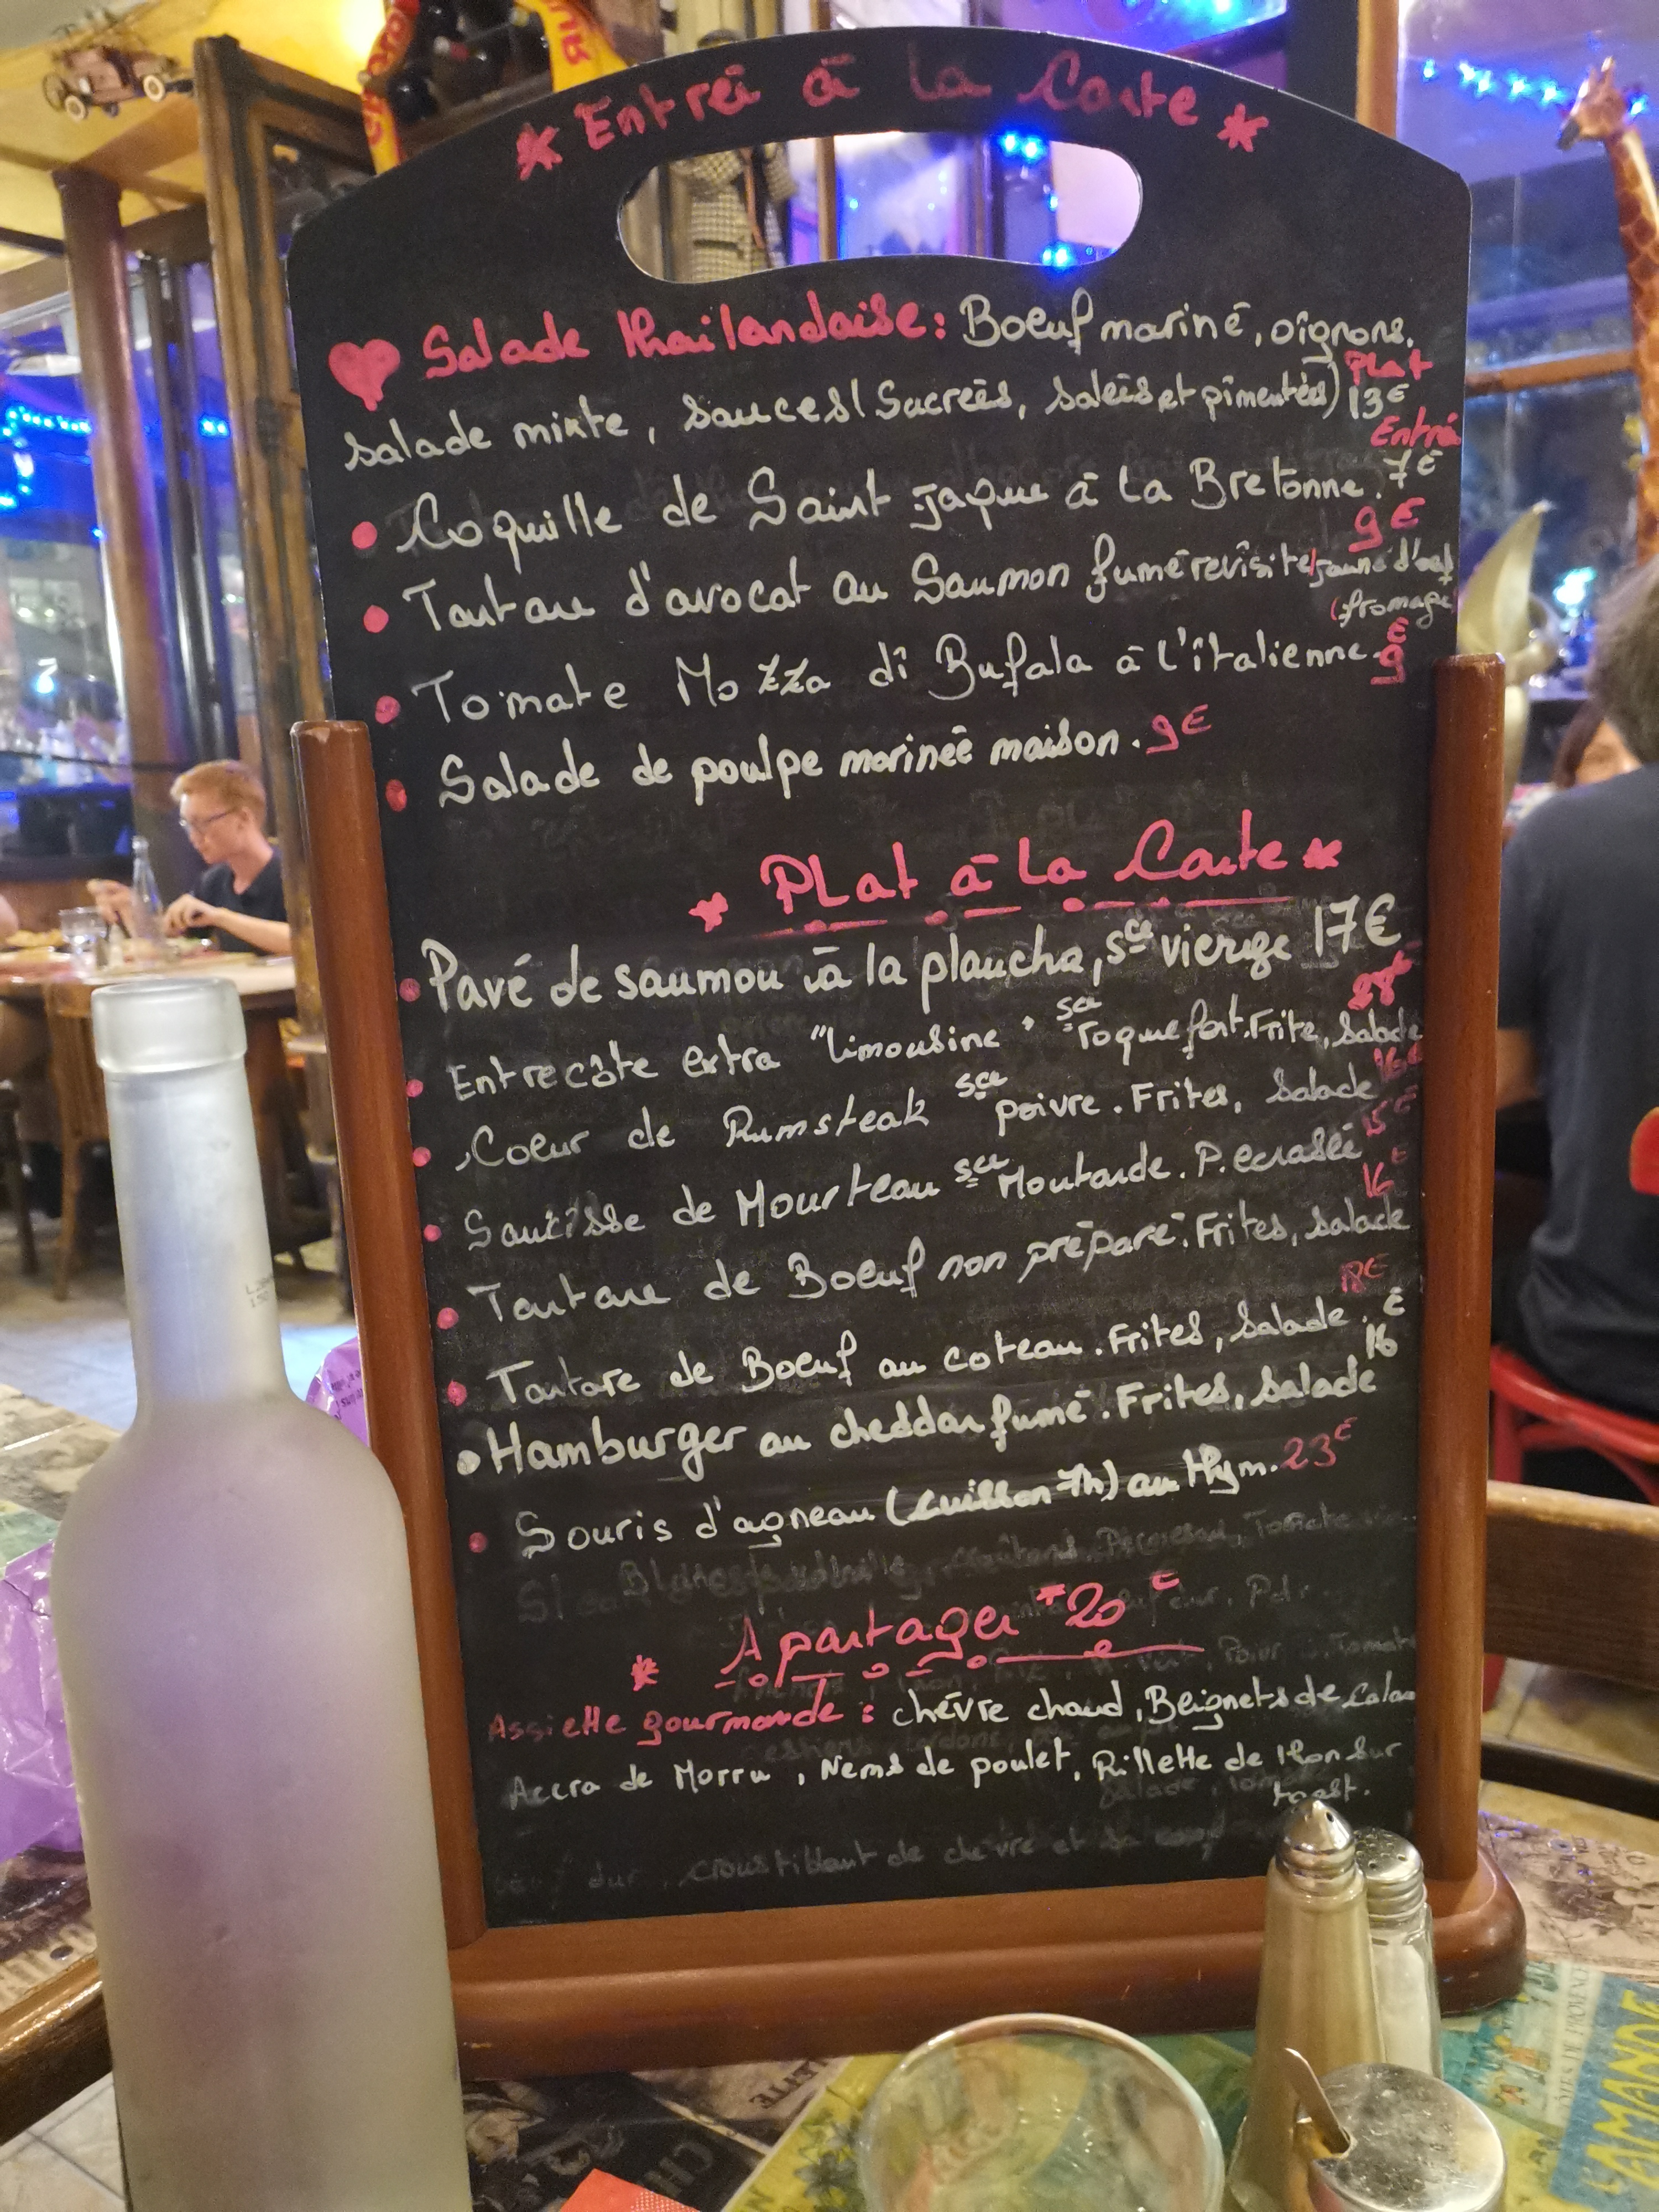 * Entreé à la Carte *
Salade thailandaise: Boeuf mariné, oignons,
Plat
salade mixte, sauces (Sucreés, saleés et pimenteés) 13€
Entreé
7€
• Coquille de Saint Jaque à la Bretonne.
9€
• Tartare d'avocat au Saumon fumé revisité (jaune d'oeuf
(fromage
• Tomate Mozza di Bufala à l'italienne. 9€
• Salade de poulpe marineé maison. 9€
* PLat à la Carte *
• Pavé de saumon à la plancha, sce vierge 17€
• Entrecôte extra "Limousine" sce roquefort. Frite, Salade
• Coeur de Rumsteak sce poivre. Frites, Salade
15€
• Saucisse de Mourteau sce Moutarde. P. ecraseé
16€
• Tartare de Boeuf non préparé. Frites, salade
• Tartare de Boeuf au coteau. Frites, Salade.
16€
• Hamburger au cheddar fumé. Frites, Salade
• Souris d'agneau (Cuisson 7h) au thym. 23€
* A partager * 20€
Assiette gourmande : chévre chaud, Beignets de Cala
Accra de Morru, Nems de poulet, Rillette de thon sur
toast.
croustillant de chevre et
AMANDE